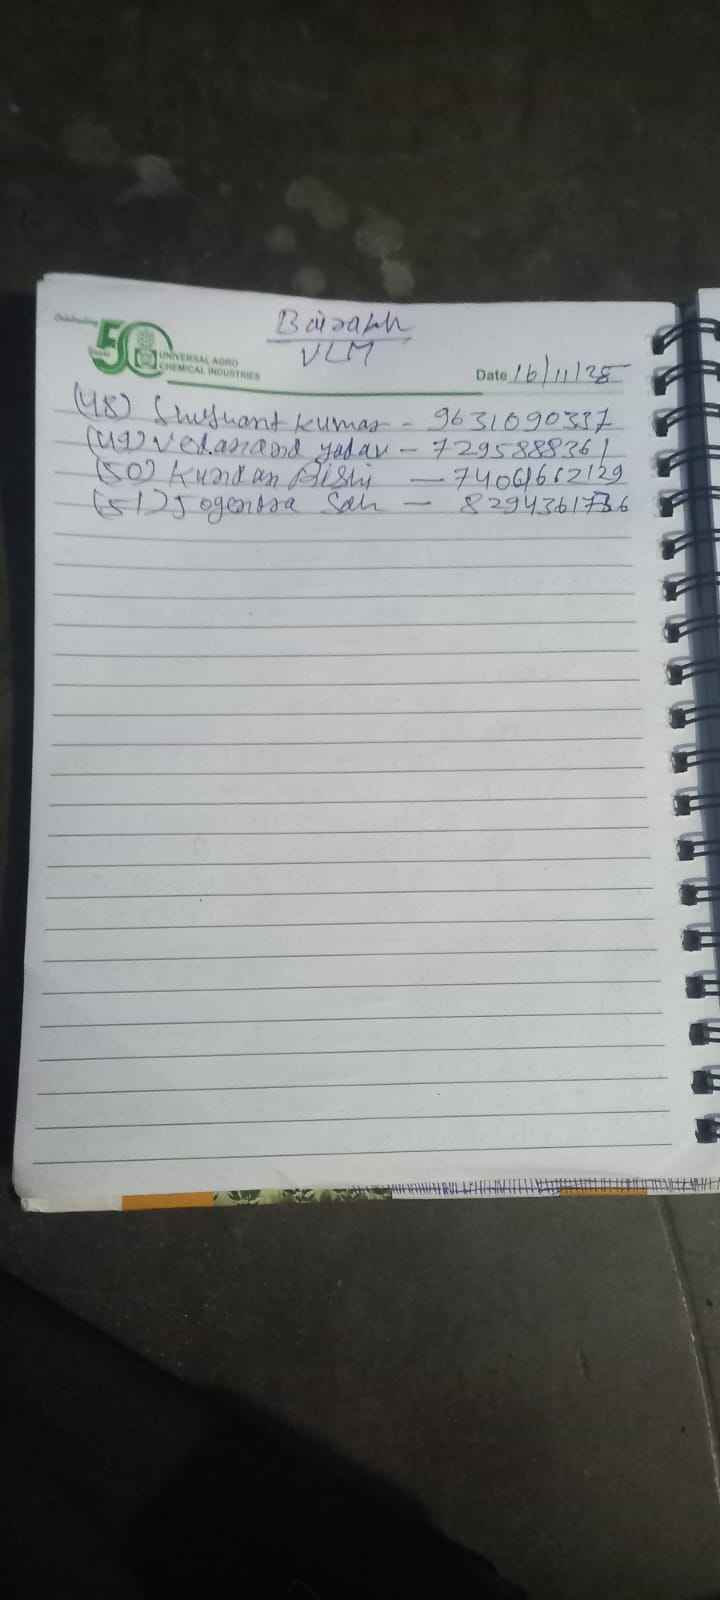 Celebrating
50
Years
UNIVERSAL AGRO
CHEMICAL INDUSTRIES
VLM
Date 16/11/25
(48) Kumar - 9631090337
(49) Vedanand yadav - 7295888361
(50) Kundan Rishi -
(51) Jogendra Sah -